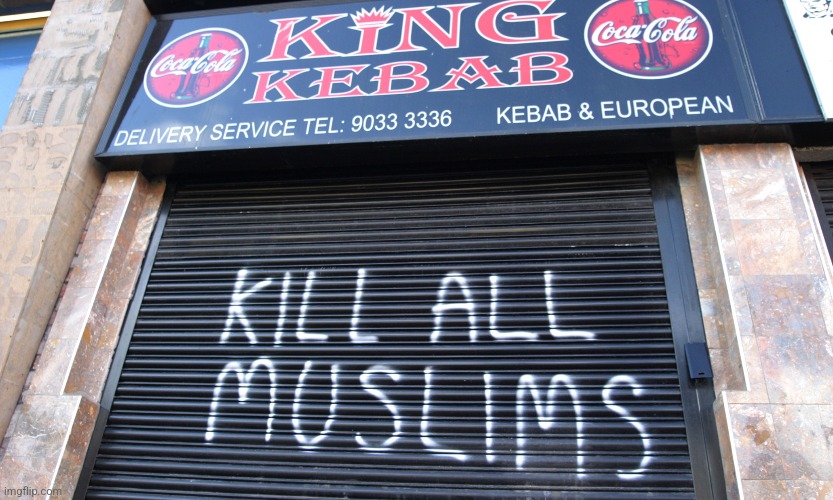 Coca-Cola
KING
KEBAB
Coca-Cola
DELIVERY SERVICE TEL: 9033 3336
KEBAB & EUROPEAN
KILL ALL
MUSLIMS
imgflip.com